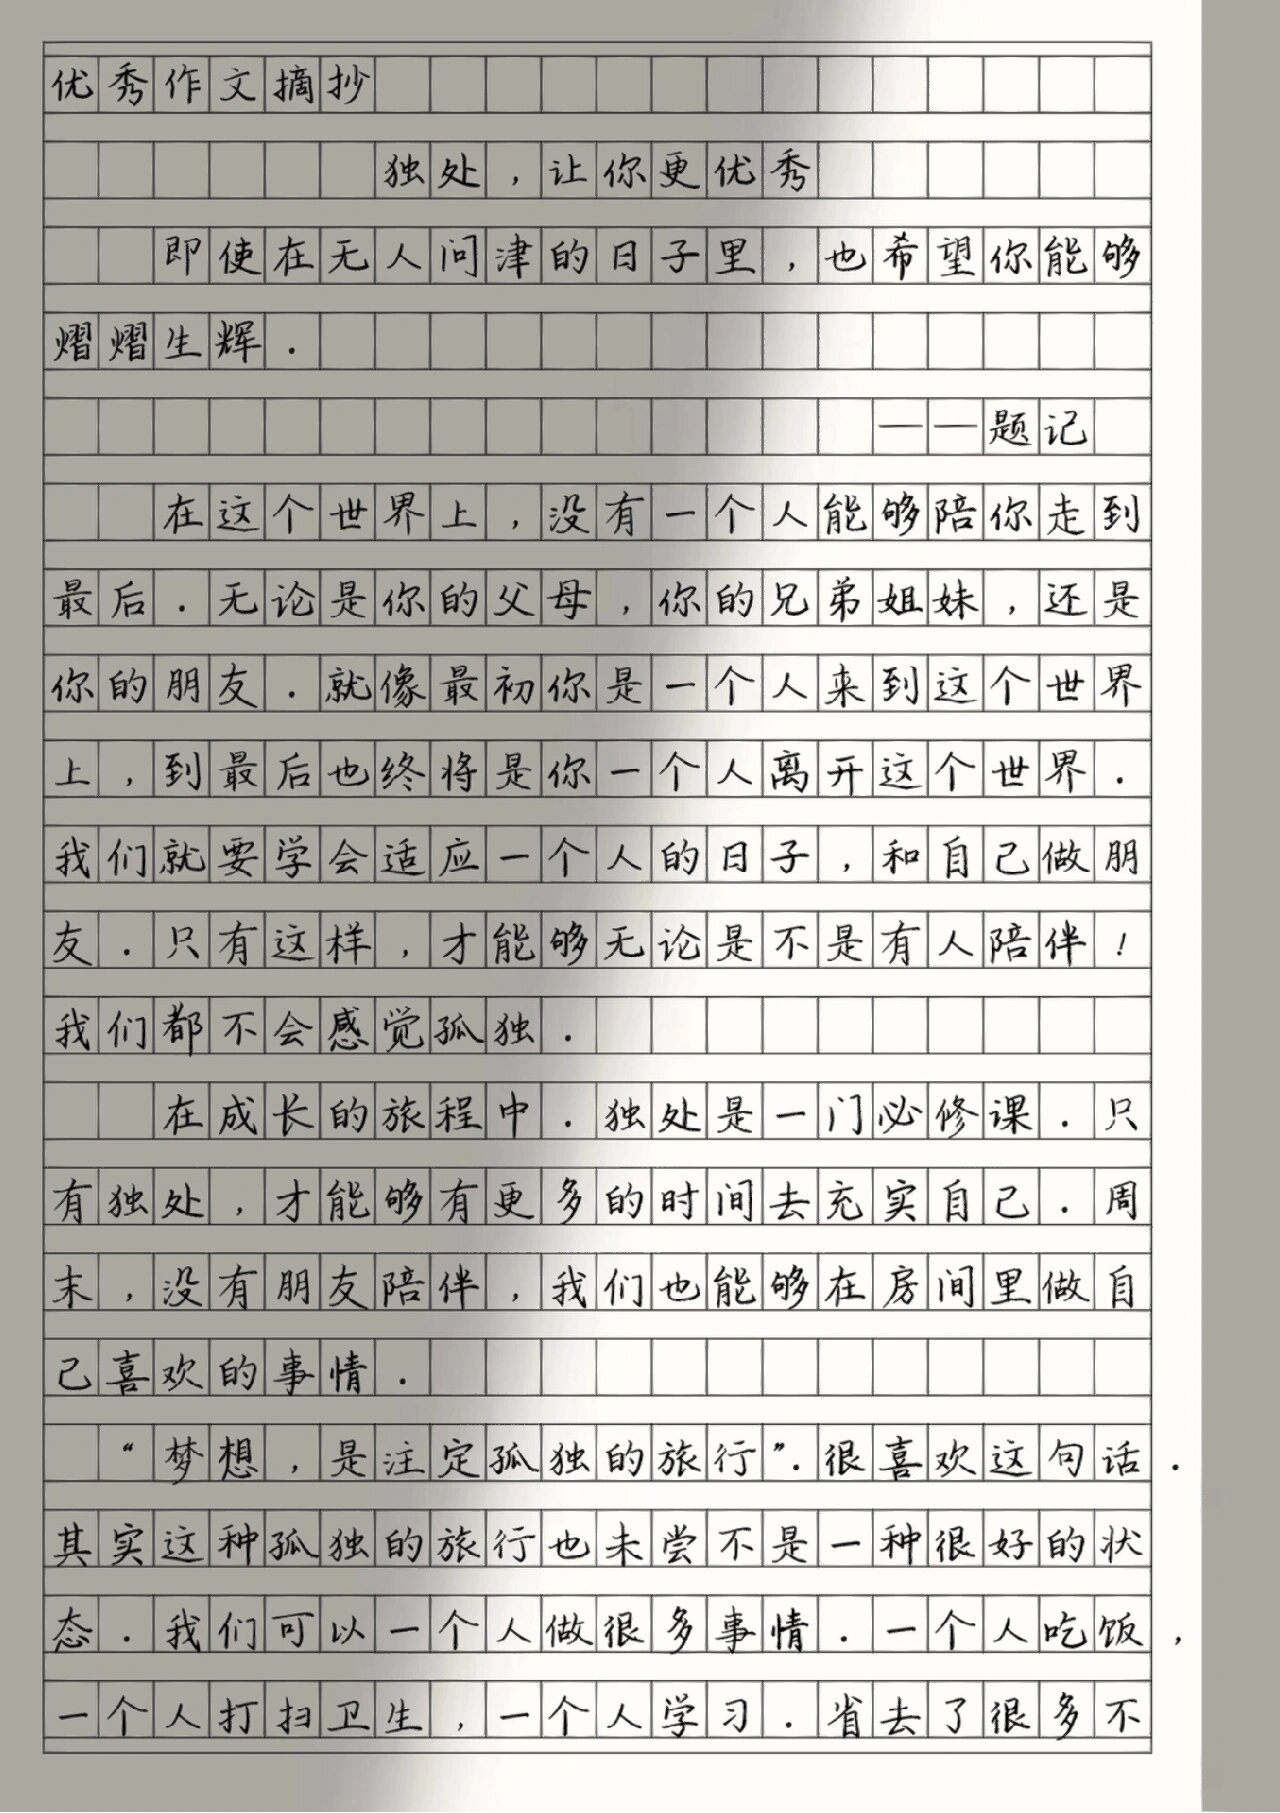 优秀作文摘抄
独处，让你更优秀
即使在无人问津的日子里，也希望你能够
熠熠生辉.
——题记
在这个世界上，没有一个人能够陪你走到
最后.无论是你的父母，你的兄弟姐妹，还是
你的朋友.就像最初你是一个人来到这个世界
上，到最后也终将是你一个人离开这个世界.
我们就要学会适应一个人的日子，和自己做朋
友.只有这样，才能够无论是不是有人陪伴！
我们都不会感觉孤独.
在成长的旅程中.独处是一门必修课.只
有独处，才能够有更多的时间去充实自己.周
末，没有朋友陪伴，我们也能够在房间里做自
己喜欢的事情.
“梦想，是注定孤独的旅行”.很喜欢这句话.
其实这种孤独的旅行也未尝不是一种很好的状
态.我们可以一个人做很多事情.一个人吃饭，
一个人打扫卫生，一个人学习.省去了很多不